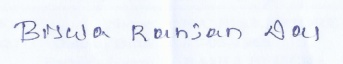 Biswa Ranjan Das